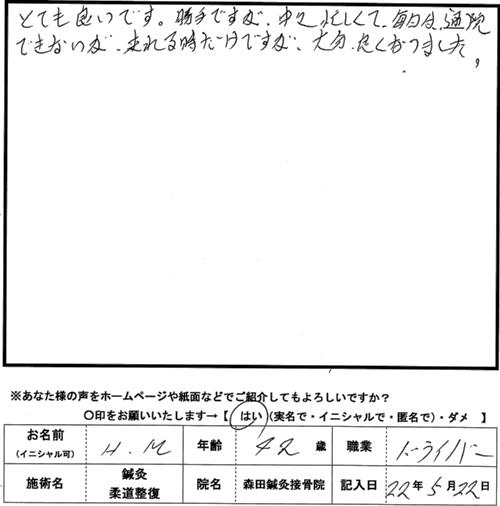 とても良いです。勝手ですが、中々忙しくて、毎日は通院
できないが、来れる時だけですが、大分、良くなりました、
※あなた様の声をホームページや紙面などでご紹介してもよろしいですか？
〇印をお願いいたします→【 はい（実名で・イニシャルで・匿名で）・ダメ 】
お名前 H.M 年齢 42 歳 職業 ドライバー
（イニシャル可）
施術名 鍼灸 柔道整復 院名 森田鍼灸接骨院 記入日 22年5月22日